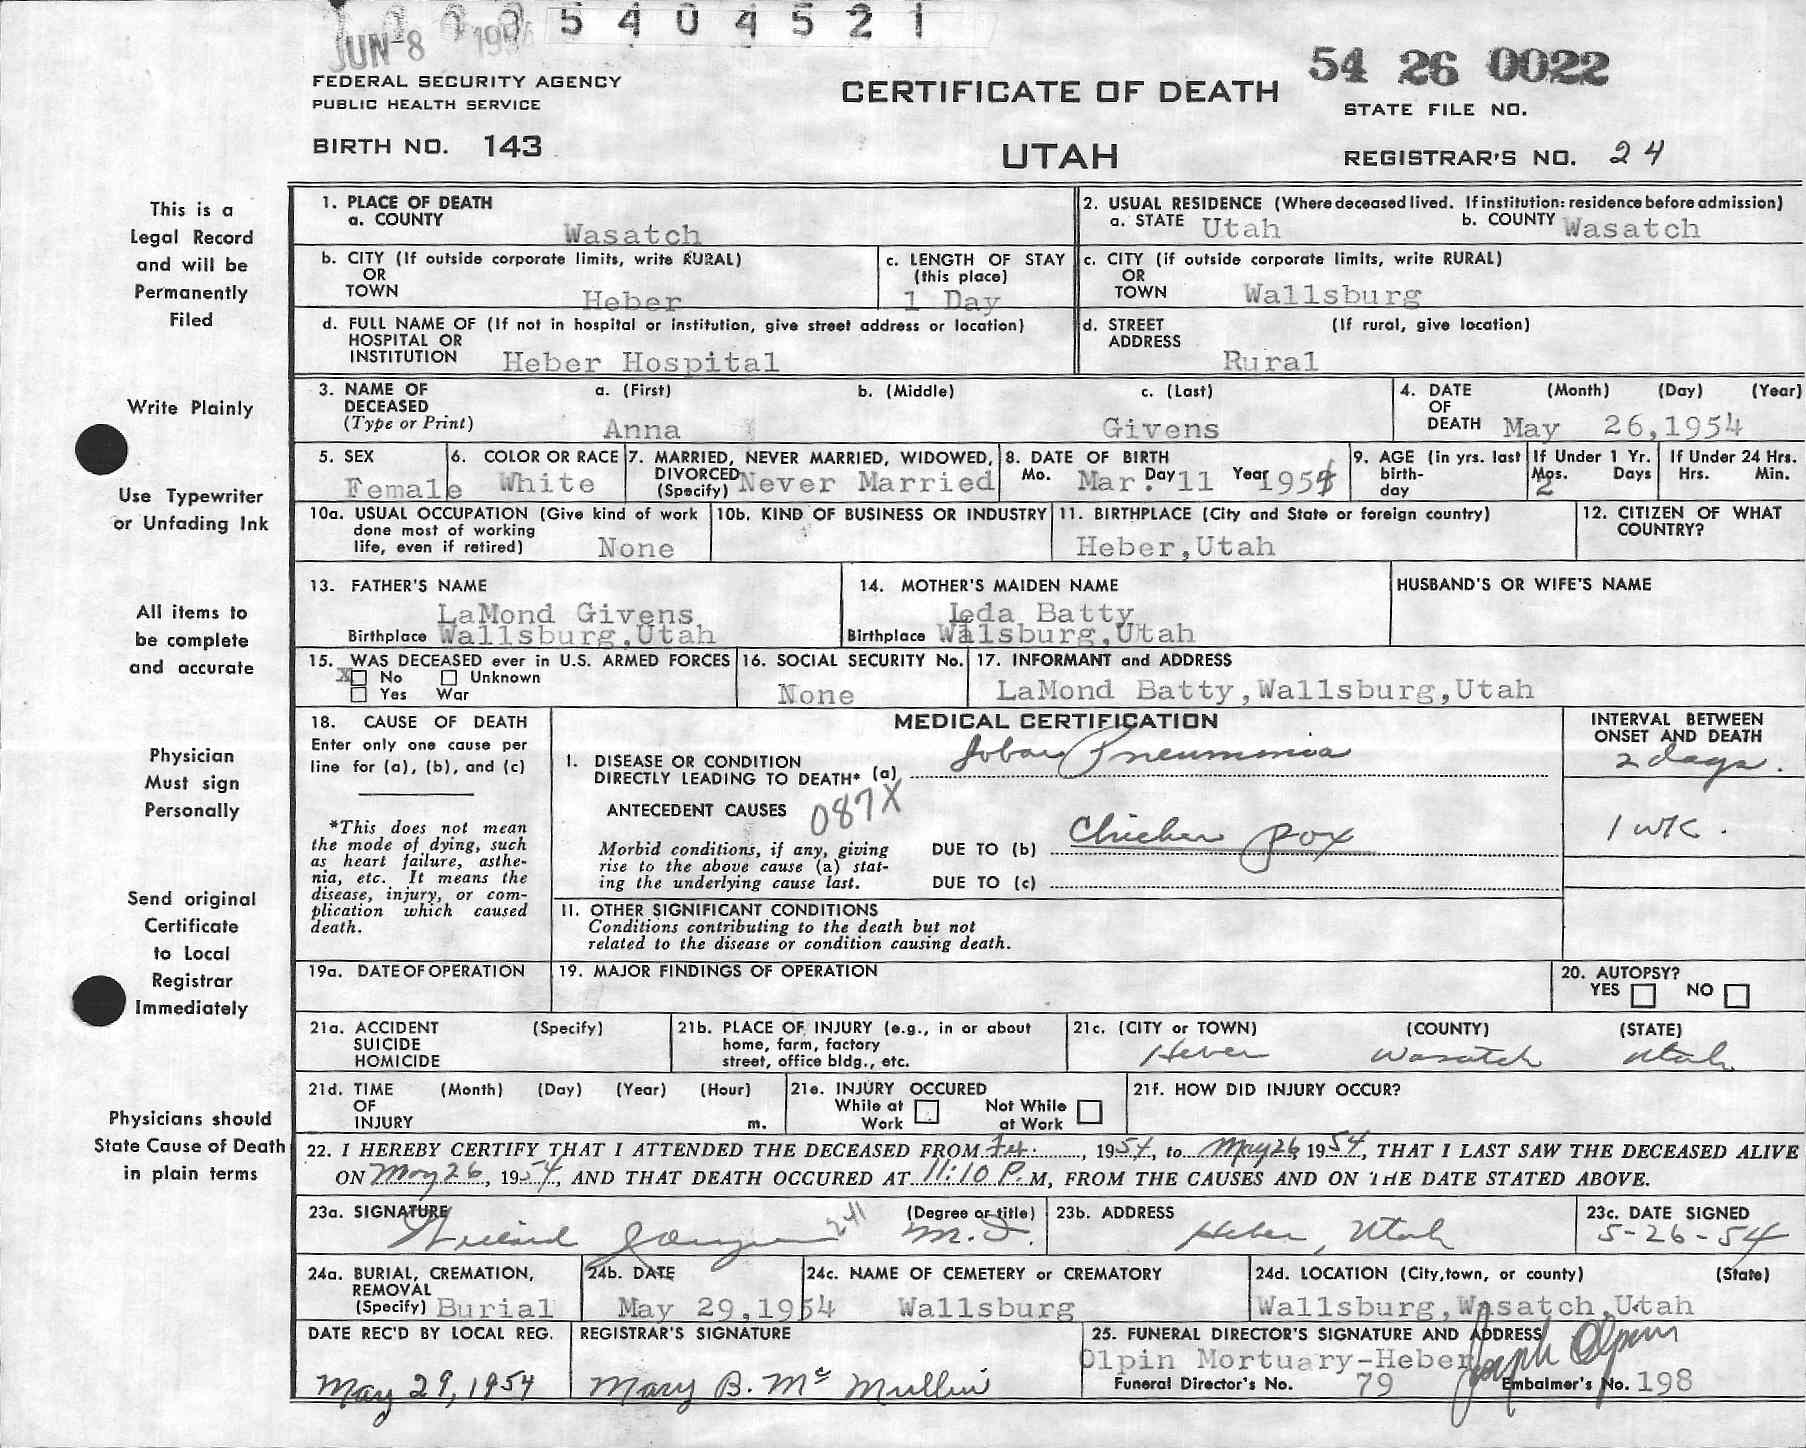 JUN-8 1954 5404521
54 26 0022
FEDERAL SECURITY AGENCY
PUBLIC HEALTH SERVICE
CERTIFICATE OF DEATH
STATE FILE NO.
BIRTH NO. 143
UTAH
REGISTRAR'S NO. 24
This is a
Legal Record
and will be
Permanently
Filed
Write Plainly
Use Typewriter
or Unfading Ink
All items to
be complete
and accurate
Physician
Must sign
Personally
Send original
Certificate
to Local
Registrar
Immediately
Physicians should
State Cause of Death
in plain terms
1. PLACE OF DEATH
a. COUNTY Wasatch
2. USUAL RESIDENCE (Where deceased lived. If institution: residence before admission)
a. STATE Utah b. COUNTY Wasatch
b. CITY (If outside corporate limits, write RURAL)
OR
TOWN Heber
c. LENGTH OF STAY
(this place)
1 Day
c. CITY (if outside corporate limits, write RURAL)
OR
TOWN Wallsburg
d. FULL NAME OF (If not in hospital or institution, give street address or location)
HOSPITAL OR
INSTITUTION Heber Hospital
d. STREET (If rural, give location)
ADDRESS
Rural
3. NAME OF a. (First) b. (Middle) c. (Last)
DECEASED
(Type or Print) Anna Givens
4. DATE (Month) (Day) (Year)
OF
DEATH May 26,1954
5. SEX
Female
6. COLOR OR RACE
White
7. MARRIED, NEVER MARRIED, WIDOWED,
DIVORCED
(Specify) Never Married
8. DATE OF BIRTH
Mo. Mar. Day 11 Year 1954
9. AGE (in yrs. last
birth-
day
If Under 1 Yr.
Mos. Days
2
If Under 24 Hrs.
Hrs. Min.
10a. USUAL OCCUPATION (Give kind of work
done most of working
life, even if retired) None
10b. KIND OF BUSINESS OR INDUSTRY
11. BIRTHPLACE (City and State or foreign country)
Heber,Utah
12. CITIZEN OF WHAT
COUNTRY?
13. FATHER'S NAME
LaMond Givens
Birthplace Wallsburg,Utah
14. MOTHER'S MAIDEN NAME
Leda Batty
Birthplace Walsburg,Utah
HUSBAND'S OR WIFE'S NAME
15. WAS DECEASED ever in U.S. ARMED FORCES
X No Unknown
Yes War
16. SOCIAL SECURITY No.
None
17. INFORMANT and ADDRESS
LaMond Batty,Wallsburg,Utah
18. CAUSE OF DEATH
Enter only one cause per
line for (a), (b), and (c)
*This does not mean
the mode of dying, such
as heart failure, asthe-
nia, etc. It means the
disease, injury, or com-
plication which caused
death.
MEDICAL CERTIFICATION
INTERVAL BETWEEN
ONSET AND DEATH
I. DISEASE OR CONDITION
DIRECTLY LEADING TO DEATH* (a) Lobar Pneumonia 2 days.
ANTECEDENT CAUSES 087X
Morbid conditions, if any, giving
rise to the above cause (a) stat-
ing the underlying cause last.
DUE TO (b) Chicken pox 1 wk.
DUE TO (c)
11. OTHER SIGNIFICANT CONDITIONS
Conditions contributing to the death but not
related to the disease or condition causing death.
19a. DATE OF OPERATION
19. MAJOR FINDINGS OF OPERATION
20. AUTOPSY?
YES NO
21a. ACCIDENT (Specify)
SUICIDE
HOMICIDE
21b. PLACE OF INJURY (e.g., in or about
home, farm, factory
street, office bldg., etc.
21c. (CITY or TOWN) (COUNTY) (STATE)
Heber Wasatch Utah
21d. TIME (Month) (Day) (Year) (Hour)
OF
INJURY m.
21e. INJURY OCCURED
While at Work
Not While at Work
21f. HOW DID INJURY OCCUR?
22. I HEREBY CERTIFY THAT I ATTENDED THE DECEASED FROM , 1954, to May 26 1954, THAT I LAST SAW THE DECEASED ALIVE
ON May 26, 1954, AND THAT DEATH OCCURED AT 11:10 P.M, FROM THE CAUSES AND ON THE DATE STATED ABOVE.
23a. SIGNATURE (Degree or title)
241 M.D.
23b. ADDRESS
Heber, Utah
23c. DATE SIGNED
5-26-54
24a. BURIAL, CREMATION,
REMOVAL
(Specify) Burial
24b. DATE
May 29,1954
24c. NAME OF CEMETERY or CREMATORY
Wallsburg
24d. LOCATION (City,town, or county) (State)
Wallsburg,Wasatch,Utah
DATE REC'D BY LOCAL REG.
May 29, 1954
REGISTRAR'S SIGNATURE
Mary B. Mc Mullin
25. FUNERAL DIRECTOR'S SIGNATURE AND ADDRESS
Olpin Mortuary-Heber Joseph Olpin
Funeral Director's No. 79 Embalmer's No. 198